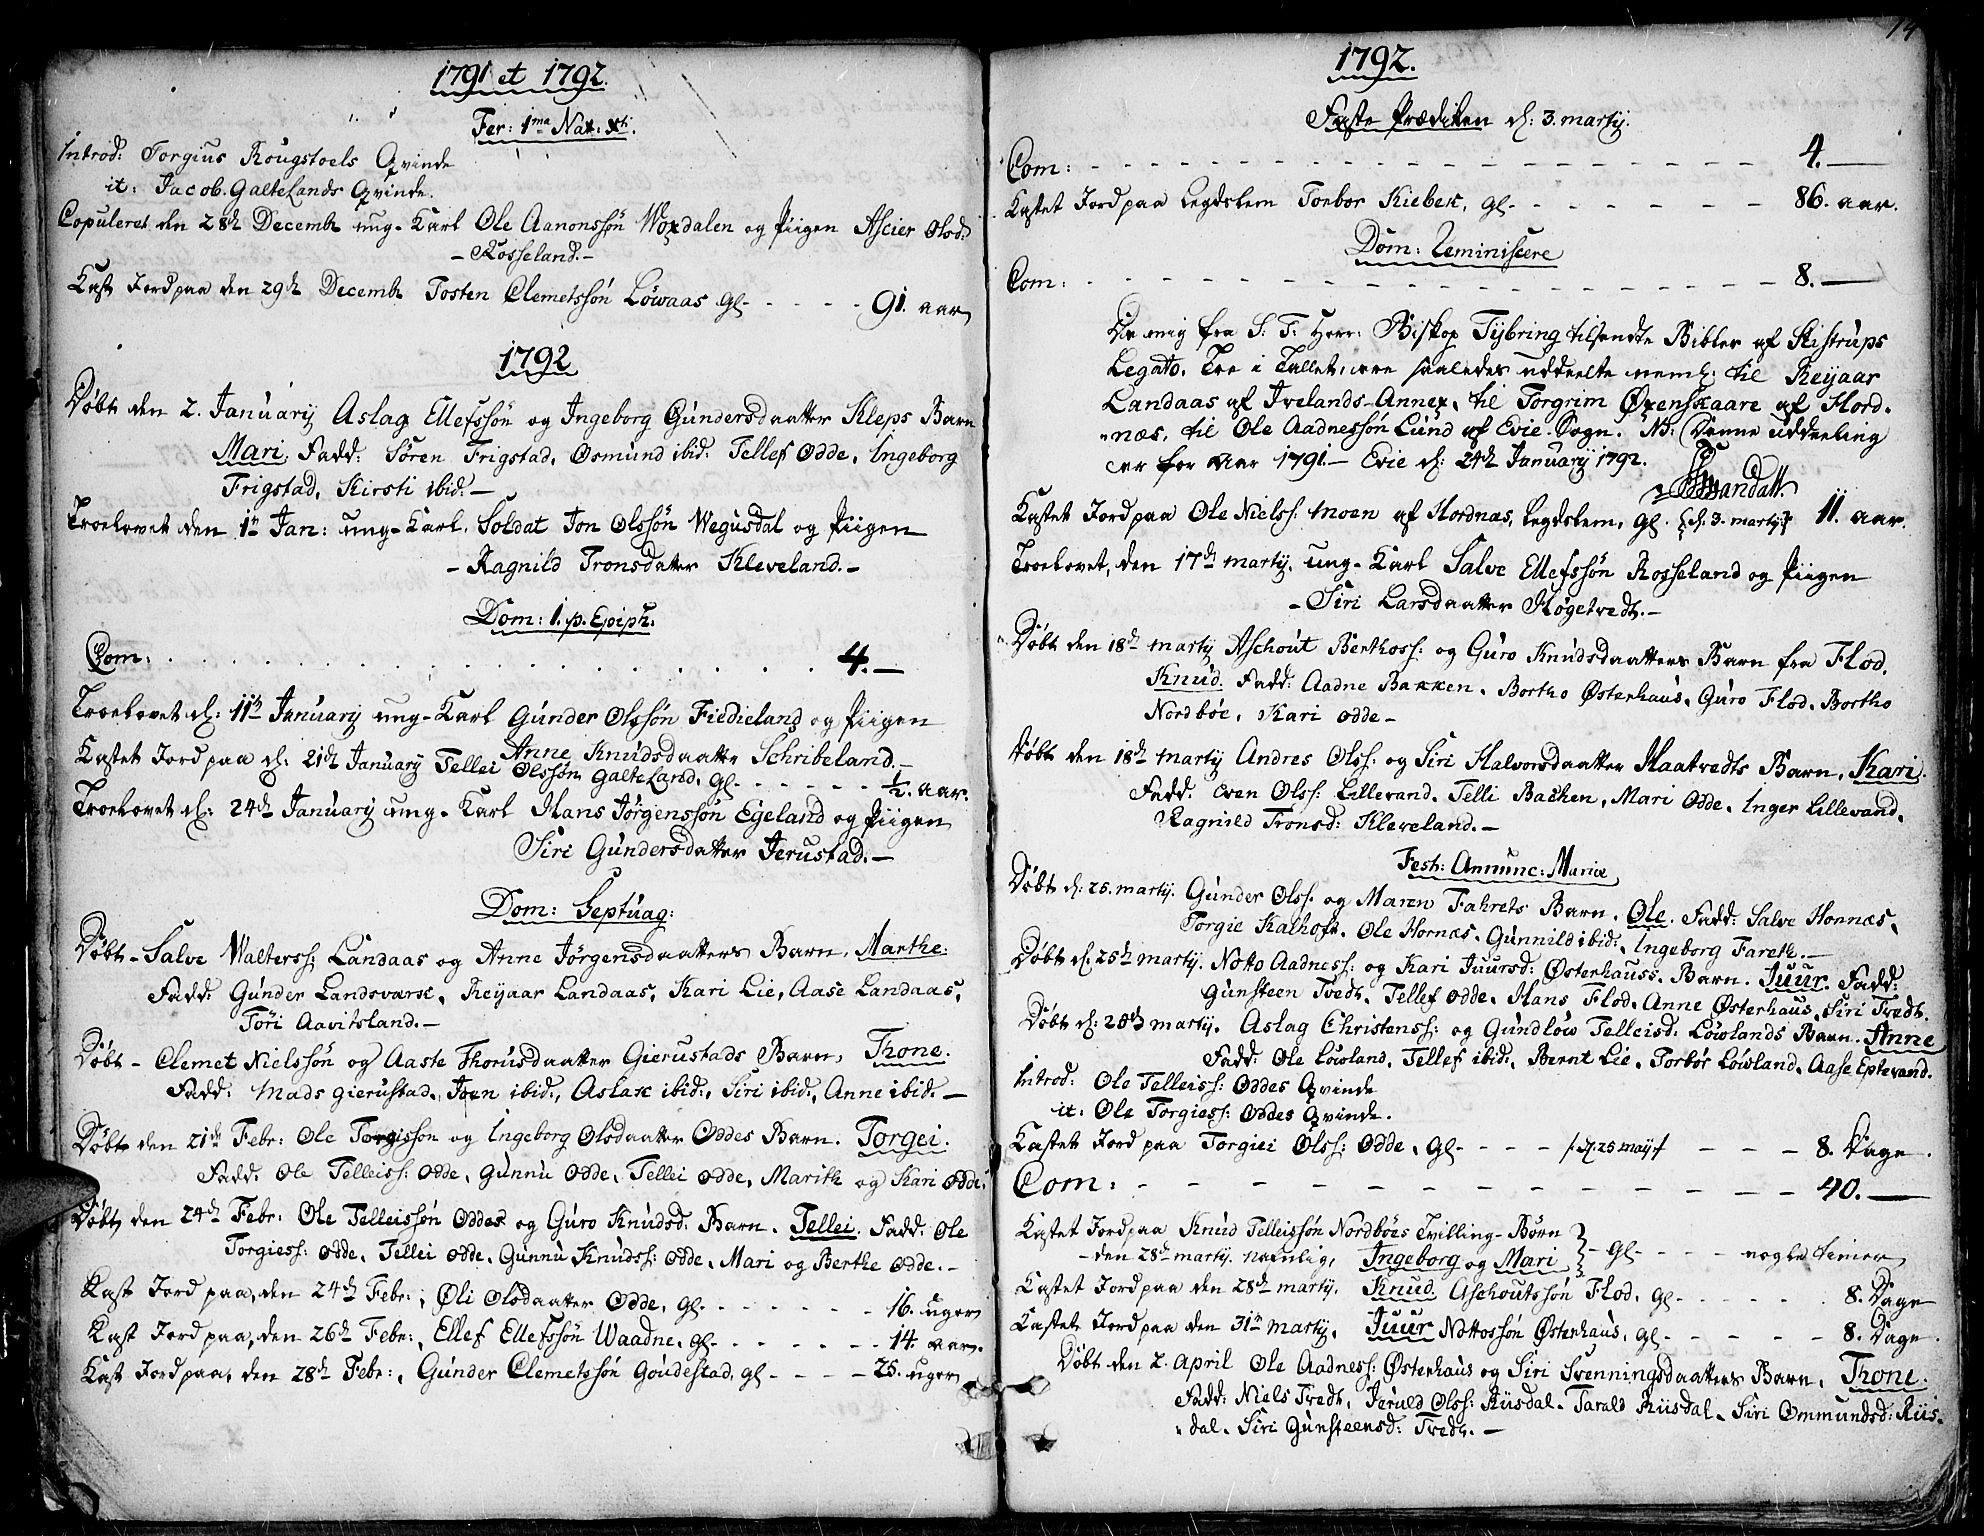 1791 et 1792.
Fer: 1ma Nat: Xti.
Introd: Torgius Rougstoels Qvinde
it: Jacob Galtelands Qvinde.
Copuleret den 28de Decembr ung-Karl Ole Aanonssön Woxdalen og Piigen Ascier Olsd:
- Rosseland.-
Kast Jord paa den 29de Decembr Tosten Clemetssön Löwaas gl - - - - - 91. aar
1792
Döbt den 2. Januarij Aslag Ellefssön og Ingeborg Gundersdaatter Kleps Barn
Mari. Fadd: Sören Frigstad, Osmund ibid: Tellef Odde, Ingeborg
Frigstad, Kirsti ibid: -
Troelovet den 1te Jan: ung-Karl, Soldat Jon Olssön Wegusdal og Piigen
- Ragnild Tronsdatter Kleveland.-
Dom: 1. p. Epiph:
Com: . . . . . . . . . . . . . . . 4.-
Troelovet d: 11te Januarij ung-Karl Gunder Olssön Fiedieland og Piigen
Anne Knudsdaatter Schribeland.-
Kastet Jord paa d: 21de Januarij Tellei Olssön Galteland, gl - - - - - - ½. aar.
Troelovet d: 24de Januarij ung-Karl Hans Jörgenssön Egeland og Piigen
Siri Gundersdatter Jerustad.-
Dom: Septuag:
Döbt - Salve Walterss: Landaas og Anne Jörgensdaatters Barn, Marthe:
Fadd: Gunder Landsværk, Reijaar Landaas, Kari Lie, Aase Landaas,
Töri Aavitsland.-
Döbt - Clemet Nielssön og Aaste Thorusdaatter Gierustads Barn, Trone.
Fadd: Mads Gierustad, Joen ibid:, Aslak ibid:, Siri ibid:, Anne ibid: -
Döbt den 21de Febr: Ole Torgisson og Ingeborg Olsdaatter Oddes Barn. Torgei.
Fadd: Ole Telleiss: Odde, Gunnu Odde, Tellei Odde, Marith og Kari Odde.
Döbt den 24de Febr: Ole Telleissön Oddes og Guro Knudsd: Barn. Tellei. Fadd: Ole
Torgiess: Odde, Tellei Odde, Gunnu Knudss: Odde, Mari og Berthe Odde.-
Kast Jord paa, den 24de Febr:, Öli Olsdaatter Odde, gl - - - - - - 16. uger
Kast Jord paa, den 26de Febr:, Ellef Ellefssön Waadne, gl - - - - - - 14. aar.
Kast Jord paa, den 28de Febr:, Gunder Clemetssön Goudestad, gl - - - - 25. uger
14
1792.
Faste Prædiken d: 3. martij.
Com: - - - - - - - - - - - - - - - 4.-
Kastet Jord paa Legdslem Torbor Kiebek, gl - - - - - - - 86. aar.
Dom: Reminiscere
Com: - - - - - - - - - - - - - - - 8.-
De mig fra S. T. Herr: Biskop Tybring tilsendte Bibler af Kistrups
Legato, Tre i Tallet, ere saaledes uddeelte neml: til Reijaar
Landaas af Ivelands-Annex, til Torgrim Öxenskaare af Hord-
næs, til Ole Aadnessön Lund af Evie-Sogn. NB: Denne uddeeling
er for Aar 1791.- Evie d: 24de Januarij 1792.
Kastet Jord paa Ole Nielss: Moen af Hordnæs, Legdslem, gl. {d: 3. martij} 11. aar.
Troelovet, den 17de martij, ung-Karl Salve Ellefssön Rosseland og Piigen
- Siri Larsdaatter Högetvedt.-
Döbt den 18de martij Aschout Berthoss: og Guro Knudsdaatters Barn fra Flod.
Knud. Fadd: Aadne Bakken, Bortho Østerhaus, Guro Flod, Bortho
Nordböe, Kari Odde -
Döbt den 18de martij Andres Olss: og Siri Halvorsdaatter Haatvedts Barn, Kari.
Fadd: Even Olss: Lillevand, Telli Bachen, Mari Odde, Inger Lillevand,
Ragnild Tronsd: Kleveland.-
Fest: Annunc: Mariæ
Döbt d: 25. martij. Gunder Olss: og Maren Fahrets Barn. Ole. Fadd: Salve Honnæs,
Torgie Kalhoft, Ole Hornæs, Gunnild ibid:, Ingeborg Fareth.-
Döbt d: 25de martij. Notto Aadness: og Kari Juursd: Østerhauss. Barn. Juur. Fadd:
Gunsteen Tvedt, Tellef Odde, Hans Flod, Anne Østerhaus, Siri Tvedt.
Döbt d: 25de martij. Aslag Christenss: og Gundlöw Telleisd: Löwlands Barn. Anne
Fadd: Ole Löwland, Tellef ibid:, Bernt Lie, Torbör Löwland, Aase Eptevand.
Introd: Ole Telleiss: Oddes Qvinde
it: Ole Torgiess: Oddes Qvinde.
Kastet Jord paa Torgiei Olss: Odde, gl - - - - - - - - 8. Dage.
Com: - - - - - - - - - - - - - - - 40.-
Kastet Jord paa Knud Telleissön Nordböes Tvilling-Börn
- den 28de martij. nemlig, Ingeborg og Mari } - gl - - - - - nogle timer
Kastet Jord paa den 28de martij, Knud Aschoutssön Flod, gl - - - - - - 8. Dage
Kastet Jord paa den 31te martij, Juur Nottossön Østerhaus, gl - - - - - - 8. Dage.
Döbt den 2. April Ole Aadness: Østerhaus og Siri Svenningsdaatters Barn, Trone.
Fadd: Niels Tvedt, Jeruld Olss: Riisdal, Tarald Riisdal, Siri Ommundsd: Riis-
dal, Siri Gunsteensd: Tvedt.-